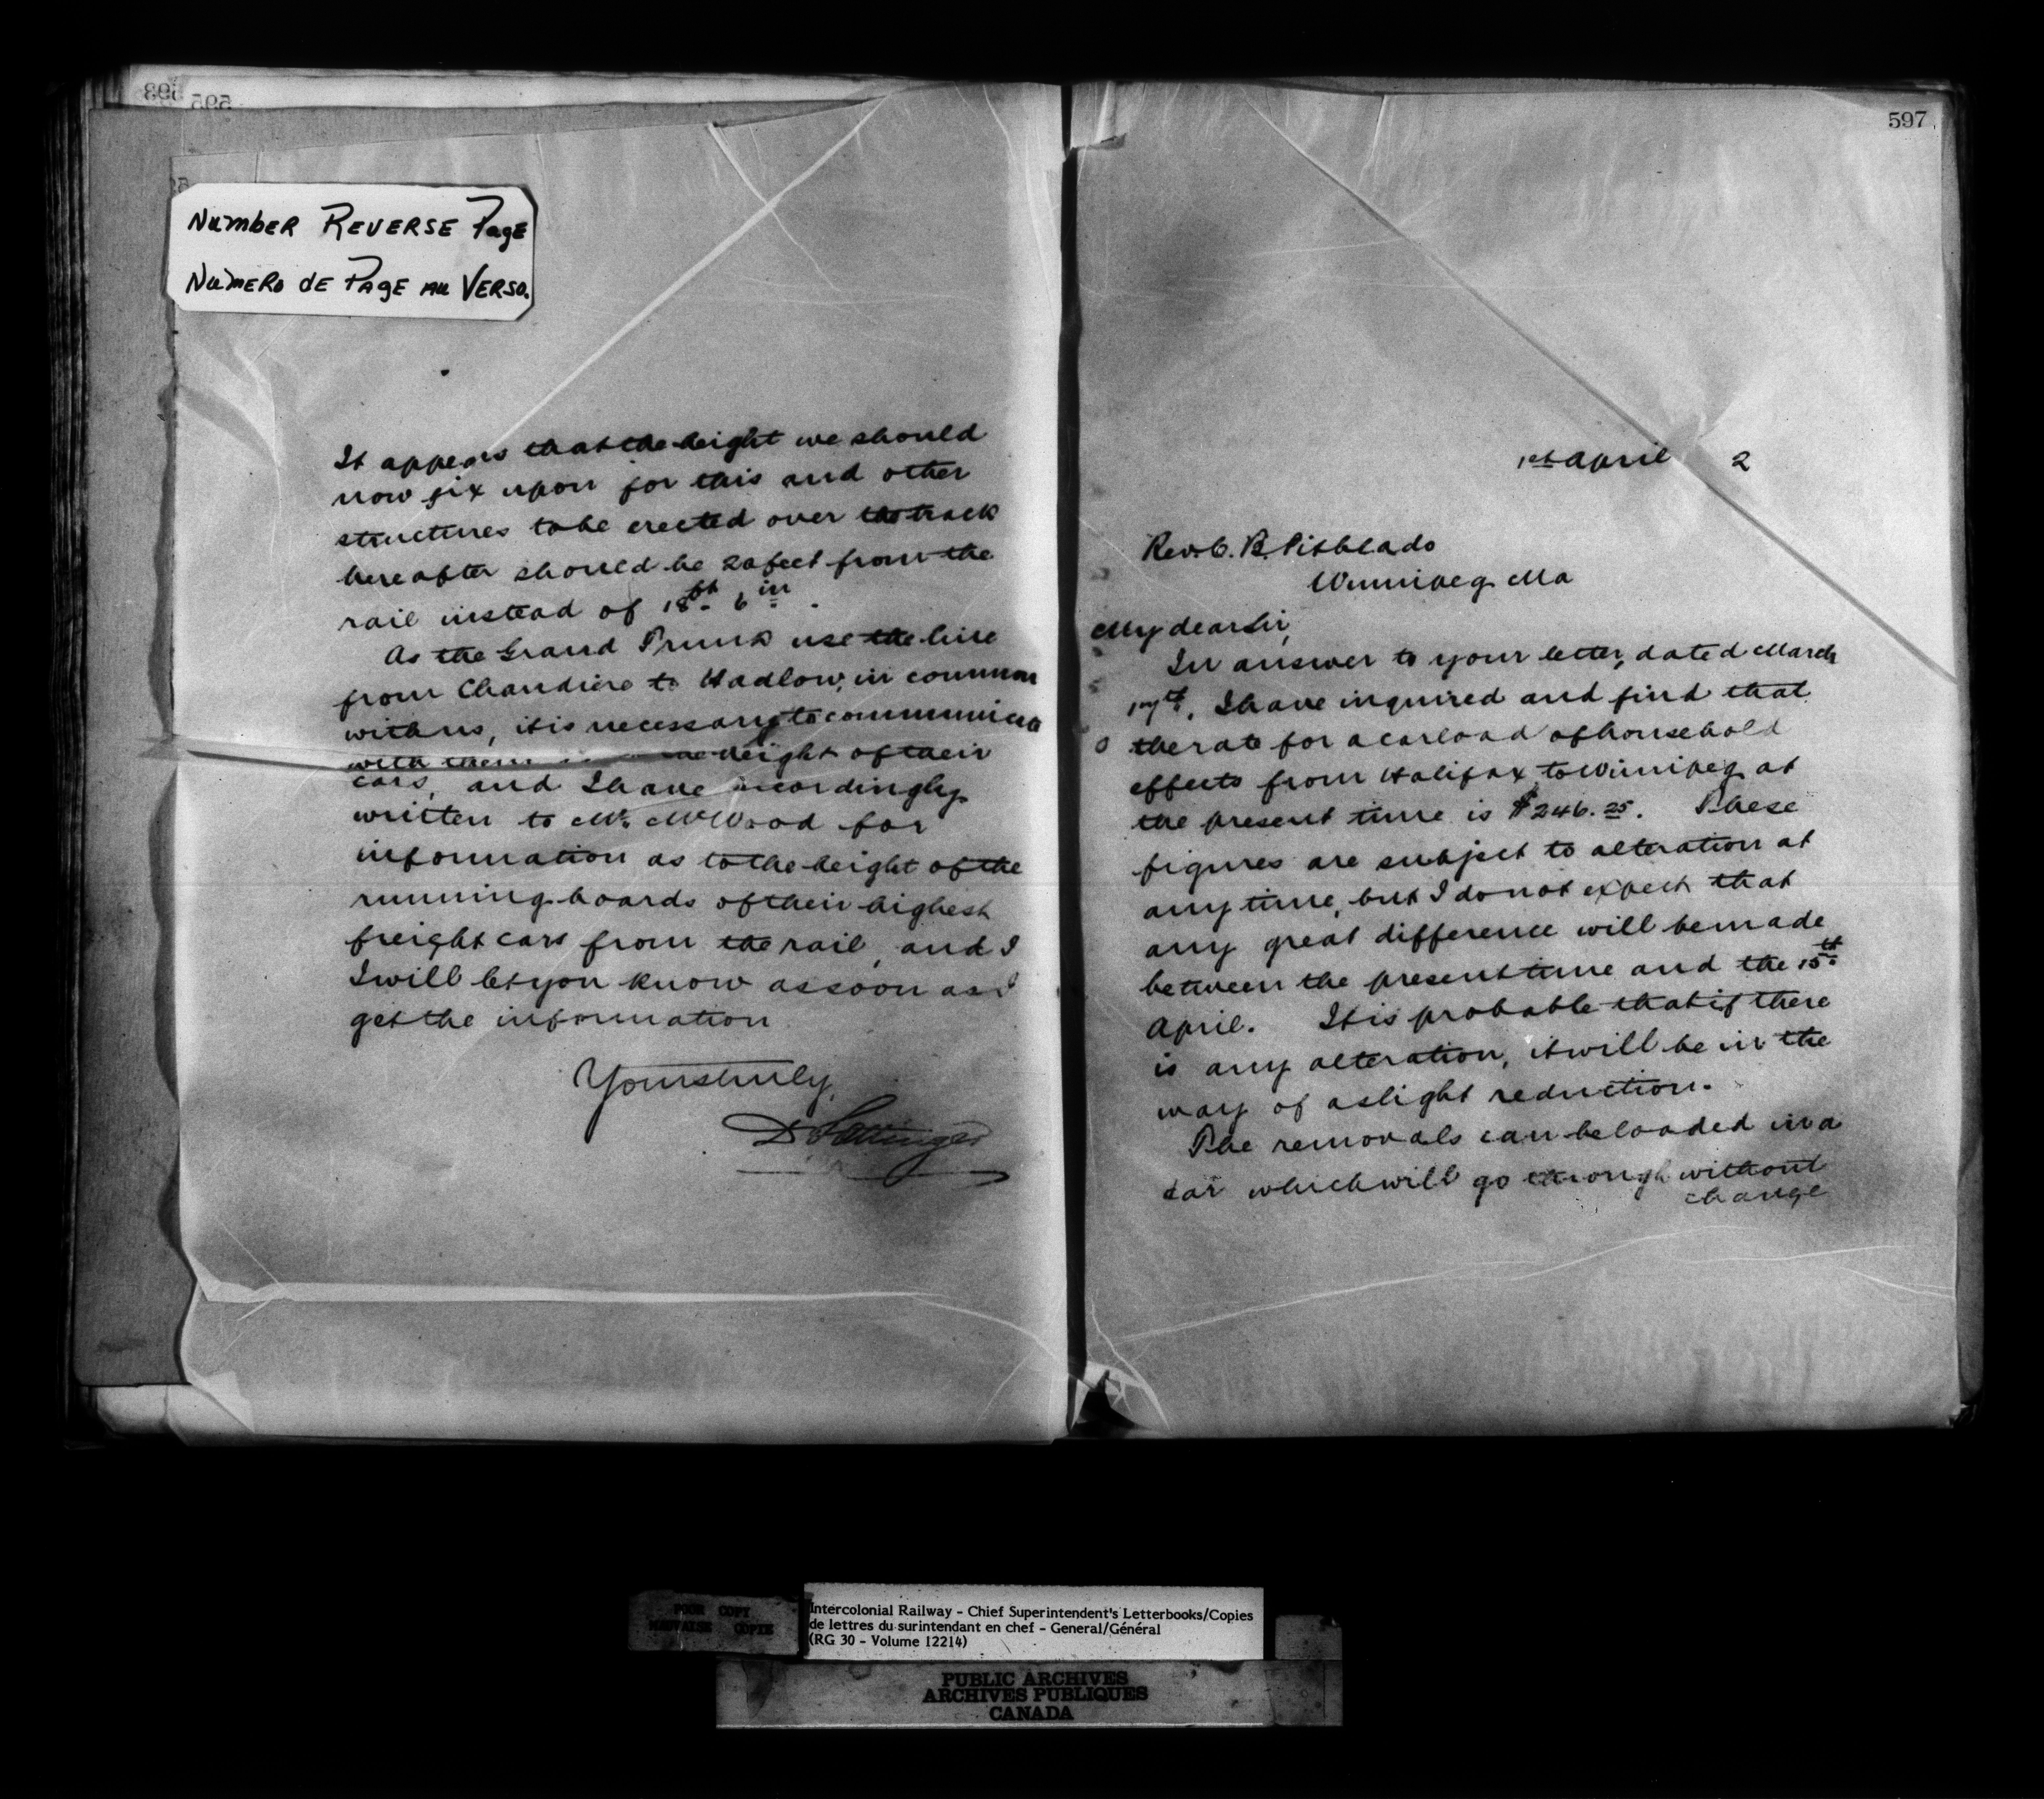 Number Reverse Page
Numero de Page au Verso.
It appears that the height we should
now fix upon for this and other
structures to be erected over the track
hereafter should be 20 feet from the
rail instead of 18ft. 6in.
As the Grand Trunk use the line
from Chaudiere to Hadlow, in common
with us, it is necessary to communicate
with them height of their
cars, and I have accordingly
written to Mr. McWood for
information as to the height of the
running boards of their highest
freight cars from the rail, and I
I will let you know as soon as I
get the information
Yours truly,
D Pottinger
597
1st April 2
Rev. C. B. Pitblado
Winnipeg Ma
My dear Sir,
In answer to your letter, dated March
17th, I have inquired and find that
the rate for a carload of household
effects from Halifax to Winnipeg at
the present time is $246.25. These
figures are subject to alteration at
any time, but I do not expect that
any great difference will be made
between the present time and the 15th
April. It is probable that if there
is any alteration, it will be in the
way of a slight reduction.
The removals can be loaded in a
car which will go through without
change
POOR COPY
MAUVAISE COPIE
Intercolonial Railway - Chief Superintendent's Letterbooks/Copies
de lettres du surintendant en chef - General/Général
(RG 30 - Volume 12214)
PUBLIC ARCHIVES
ARCHIVES PUBLIQUES
CANADA